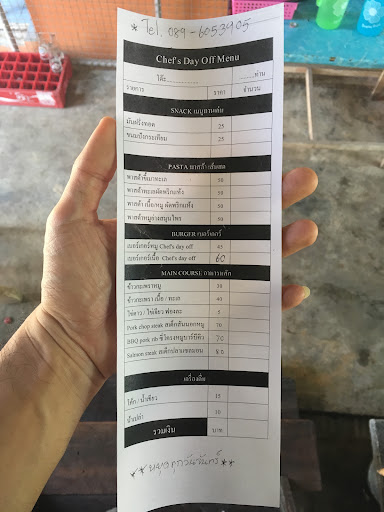 * Tel. 089-6053905
Chef's Day Off Menu
โต๊ะ ............ ........ท่าน
รายการ ราคา จำนวน
SNACK เมนูทานเล่น
มันฝรั่งทอด 25
ขนมปังกระเทียม 25
PASTA พาสต้าเส้นสด
พาสต้าขี้เมาทะเล 50
พาสต้าทะเลผัดพริกแห้ง 50
พาสต้า เนื้อ/หมู ผัดพริกแห้ง 50
พาสต้าหมูย่างสมุนไพร 50
BURGER เบอร์เกอร์
เบอร์เกอร์หมู Chef's day off 45
เบอร์เกอร์เนื้อ Chef's day off 60
MAIN COURSE จานหลัก
ข้าวกะเพราหมู 30
ข้าวกะเพรา เนื้อ / ทะเล 40
ไข่ดาว / ไข่เจียว ฟองละ 5
Pork chop steak สเต็กสันนอกหมู 70
BBQ pork rib ซี่โครงหมูบาร์บีคิว 70
Salmon steak สเต็กปลาแซลมอน 80
เครื่องดื่ม
โค้ก / น้ำเขียว 15
น้ำเปล่า 10
รวมเงิน บาท
**หยุดทุกวันจันทร์**